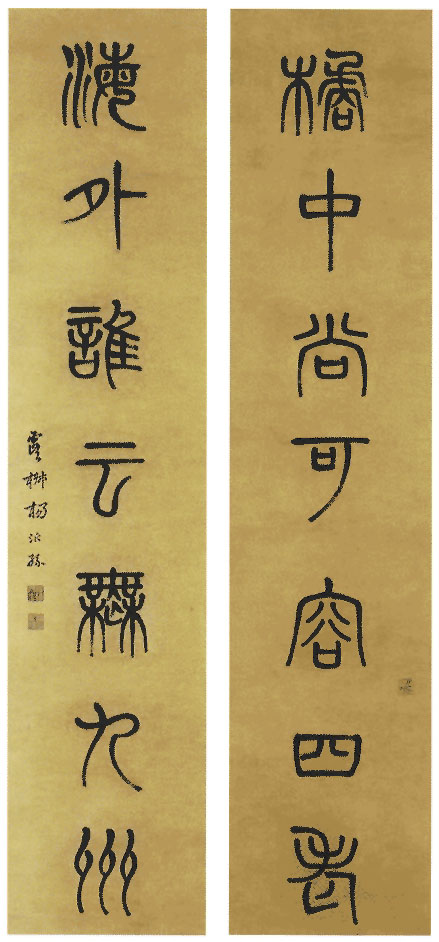 橘中尚可容四老
海外誰云無九州
楊沂孫